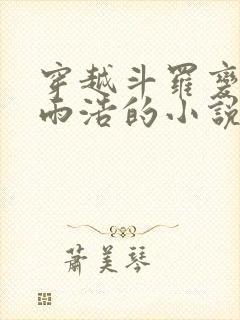 穿越斗羅變
雨浩的小說
蕭美琴